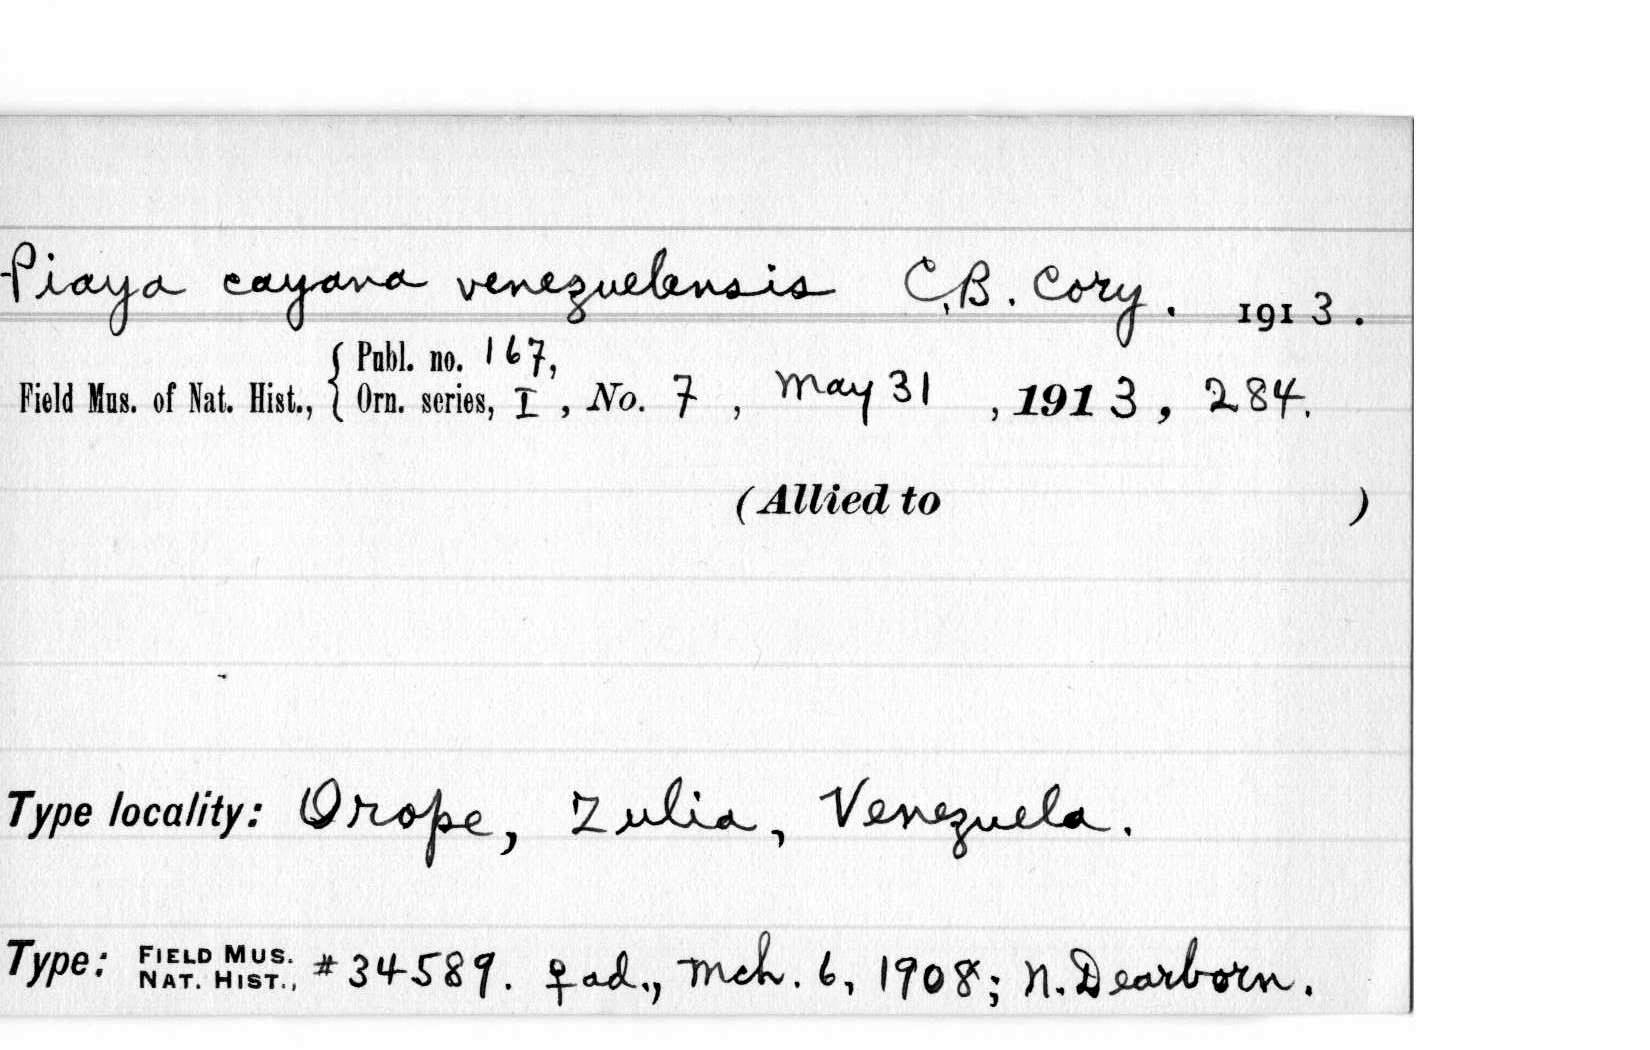 Piaya cayana venezuelensis C.B. Cory. 1913.
Publ. no. 167,
Field Mus. of Nat. Hist., Orn. series, I, No. 7, May 31, 1913, 284.
(Allied to )
Type locality: Orope, Zulia, Venezuela.
Type: FIELD MUS. NAT. HIST., #34589. ♀ ad., Mch. 6, 1908; N. Dearborn.